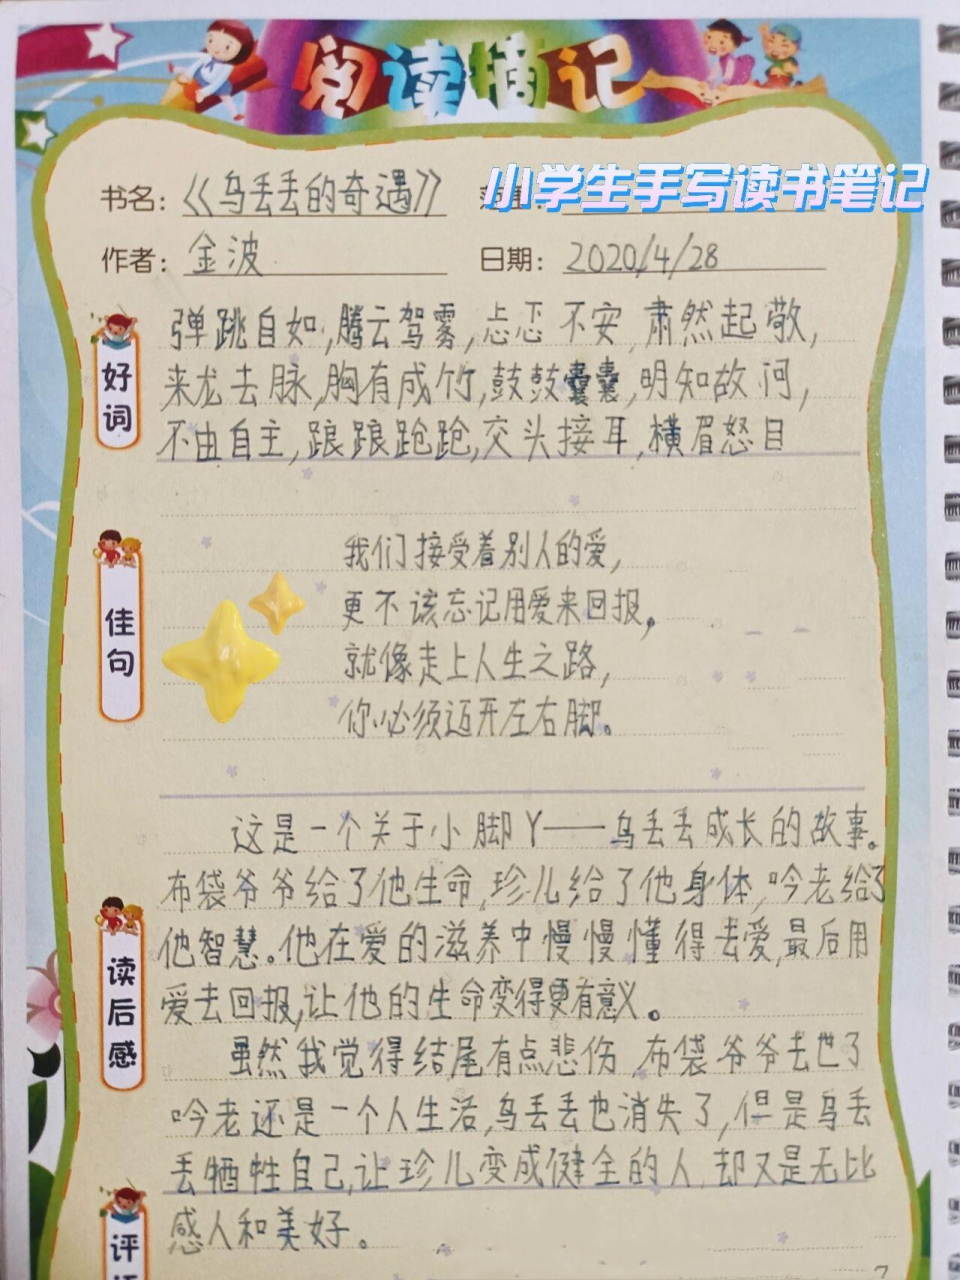 阅读摘记
小学生手写读书笔记
书名：《乌丢丢的奇遇》
作者：金波
日期：2020/4/28
好词
弹跳自如,腾云驾雾,忐忑不安,肃然起敬,
来龙去脉,胸有成竹,鼓鼓囊囊,明知故问,
不由自主,踉踉跄跄,交头接耳,横眉怒目
佳句
我们接受着别人的爱,
更不该忘记用爱来回报。
就像走上人生之路,
你必须迈开左右脚。
读后感
这是一个关于小脚丫——乌丢丢成长的故事。
布袋爷爷给了他生命,珍儿给了他身体,吟老给了
他智慧。他在爱的滋养中慢慢懂得去爱,最后用
爱去回报,让他的生命变得更有意义。
虽然我觉得结尾有点悲伤,布袋爷爷去世了
吟老还是一个人生活,乌丢丢也消失了,但是乌丢
丢牺牲自己,让珍儿变成健全的人,却又是无比
感人和美好。
评
7